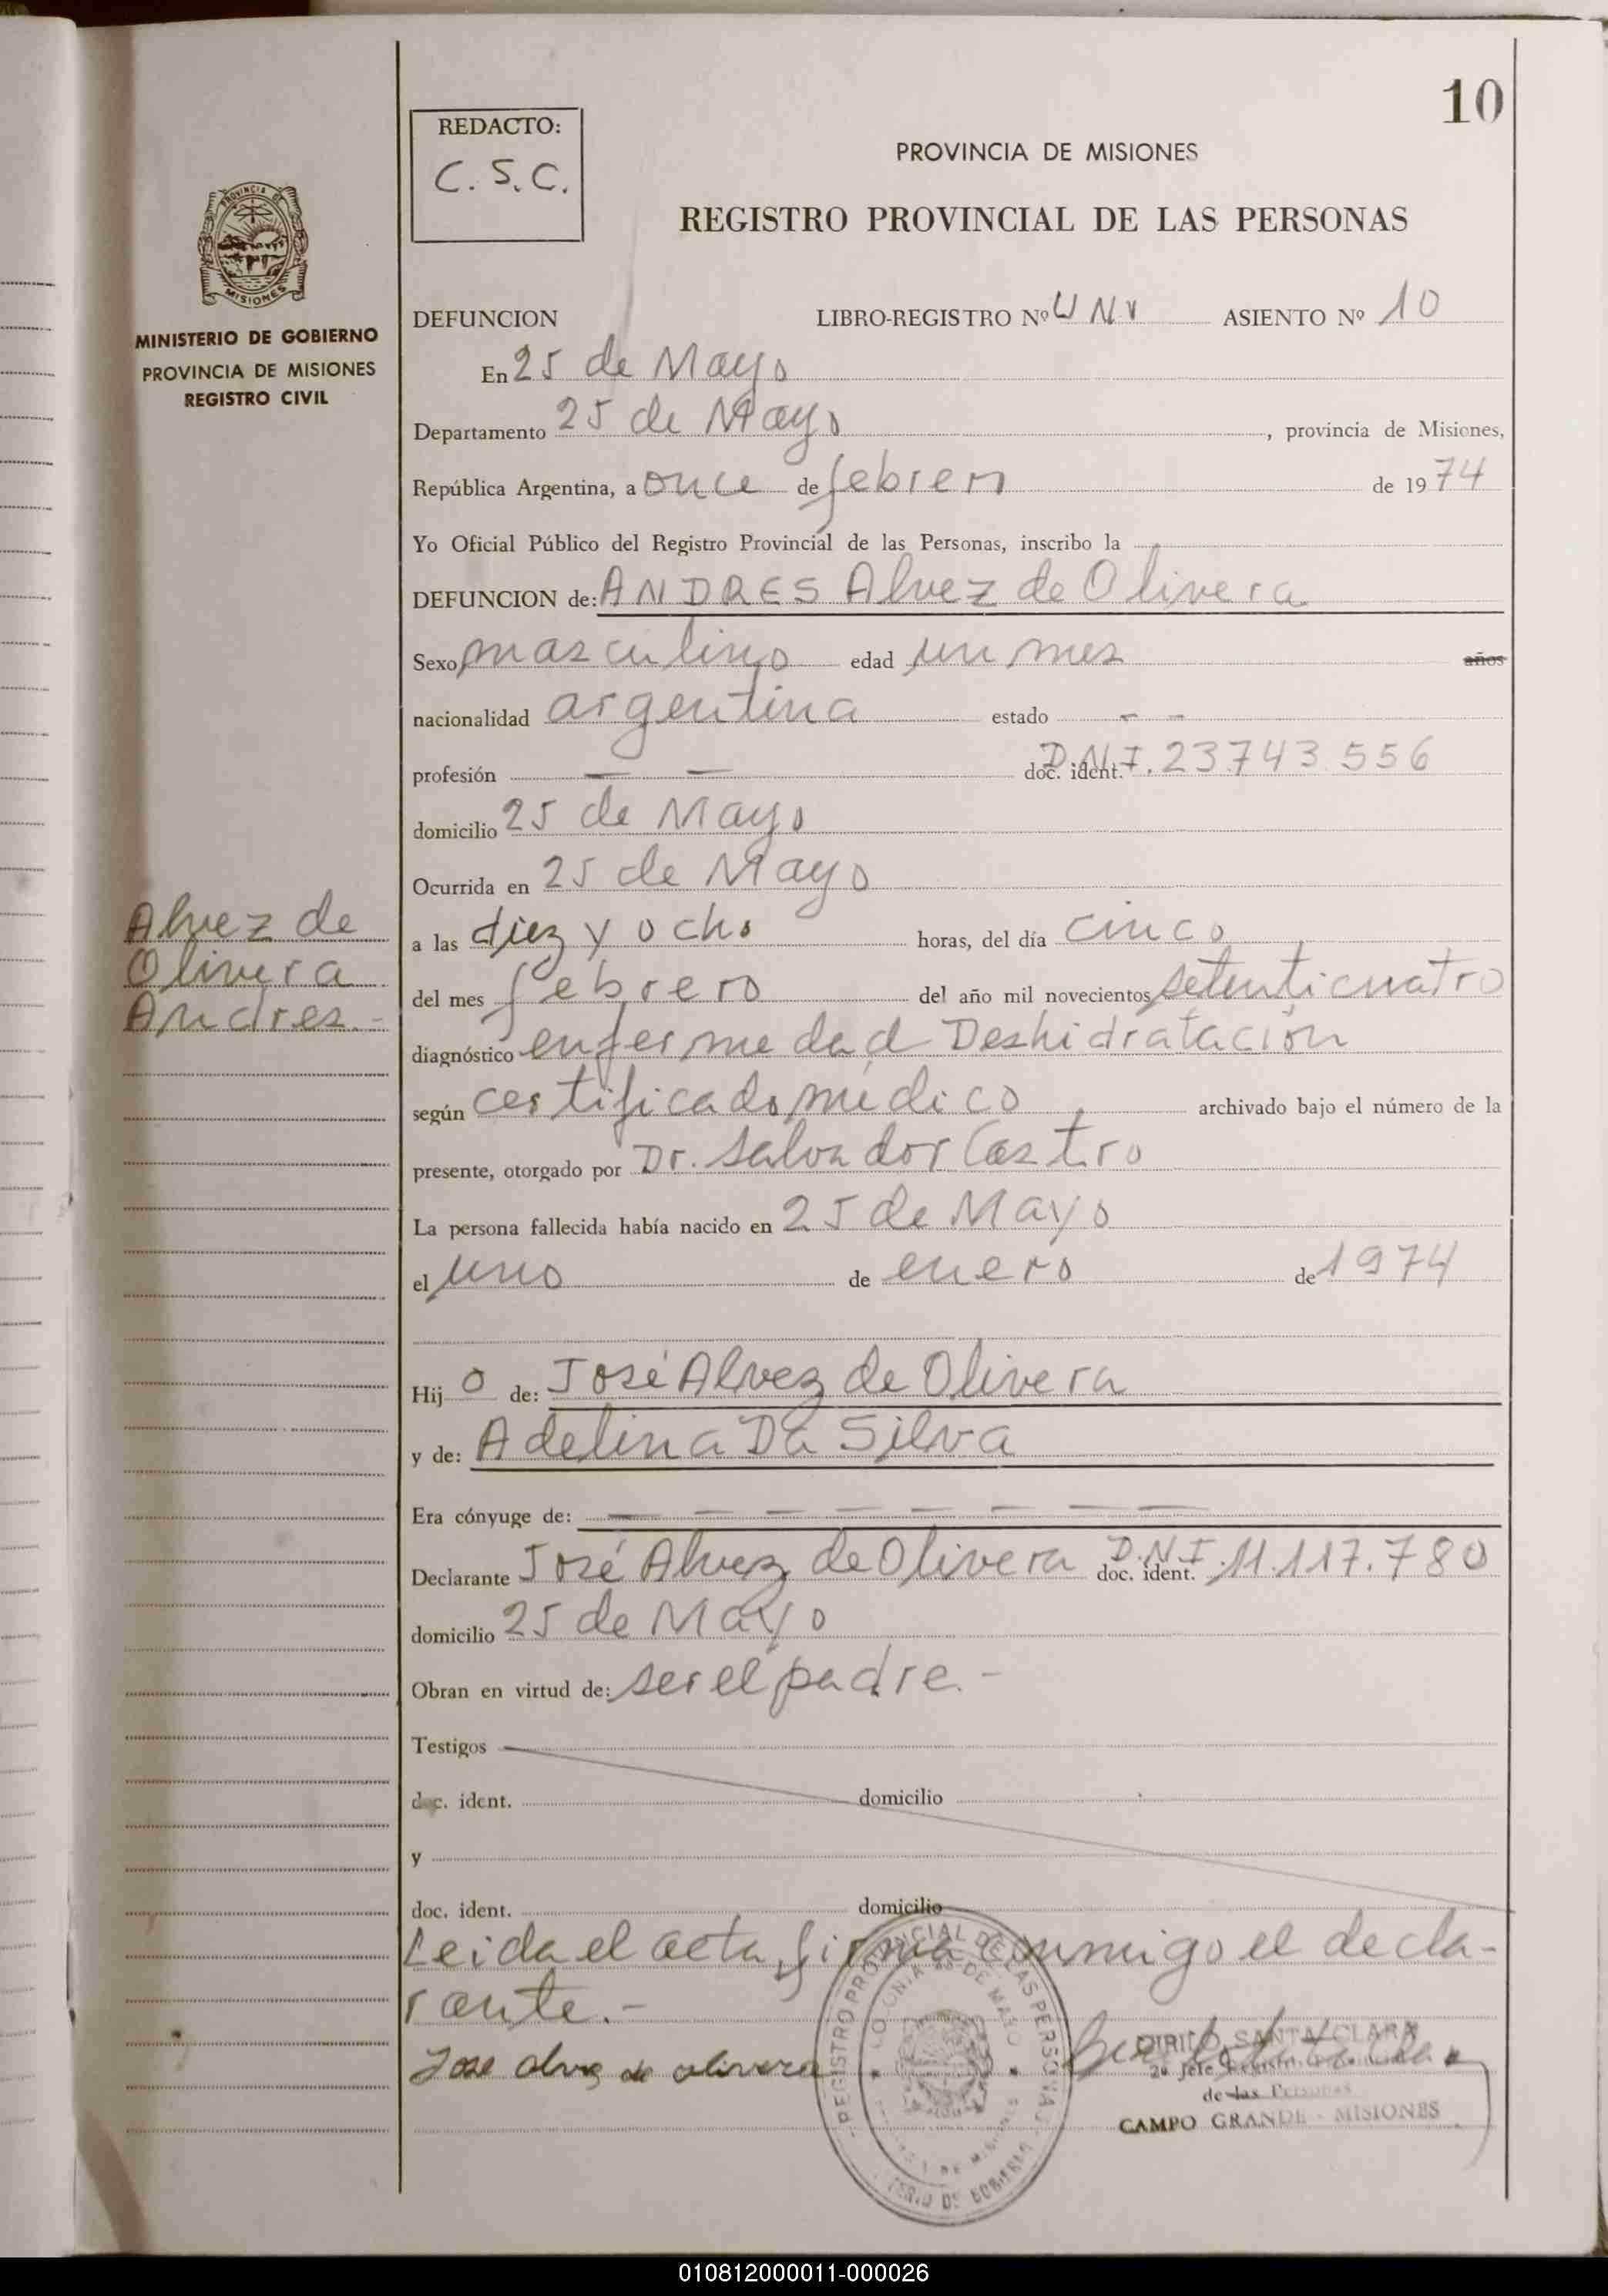 10
REDACTO:
C. S. C.
PROVINCIA DE MISIONES
REGISTRO PROVINCIAL DE LAS PERSONAS
PROVINCIA DE
MISIONES
MINISTERIO DE GOBIERNO
PROVINCIA DE MISIONES
REGISTRO CIVIL
DEFUNCION LIBRO-REGISTRO Nº ASIENTO Nº 10
En 25 de Mayo
Departamento 25 de Mayo, provincia de Misiones,
República Argentina, a once de febrero de 1974
Yo Oficial Público del Registro Provincial de las Personas, inscribo la
DEFUNCION de: ANDRES Alvez de Olivera
Sexo masculino edad un mes años
nacionalidad argentina estado - -
profesión — — doc. ident. D.N.I. 23743556
domicilio 25 de Mayo
Ocurrida en 25 de Mayo
a las diez y ocho horas, del día cinco
del mes febrero del año mil novecientos setenticuatro
diagnóstico enfermedad Deshidratación
según certificado médico archivado bajo el número de la
presente, otorgado por Dr. Salvador Castro
La persona fallecida había nacido en 25 de Mayo
el uno de enero de 1974
Hijo de: José Alvez de Olivera
y de: Adelina Da Silva
Era cónyuge de: — — — — — — — —
Declarante José Alvez de Olivera doc. ident. D.N.I. 11.117.780
domicilio 25 de Mayo
Obran en virtud de: ser el padre.-
Testigos
doc. ident. domicilio
y
doc. ident. domicilio
Leida el acta, firma conmigo el decla-
rante.-
Alvez de
Olivera
Andres.-
Jose de olivera
REGISTRO PROVINCIAL DE LAS PERSONAS
COLONIA 25 DE MAYO
SANTA CLARA
2º Jefe
de las Personas
CAMPO GRANDE - MISIONES
010812000011-000026